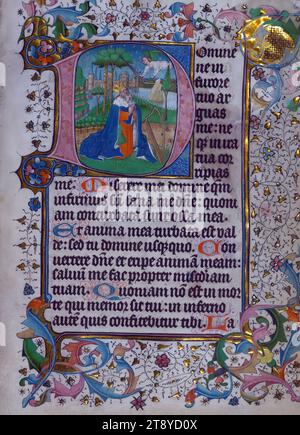 Domine
ne in
furore
tuo ar
guas
me: neq
in ira
tua cor
ripias
me: Miserere mei domine qm̄
infirmus sum sana me dn̄e: quoni
am conturbata sunt ossa mea.
Et anima mea turbata est val
de: sed tu domine usq̄quo. Con
vertere dn̄e et eripe animam meam:
salvū me fac propter miām
tuam. Quoniam nō est in mor
te qui memor sit tui: in inferno
autē quis confitebitur tibi. La